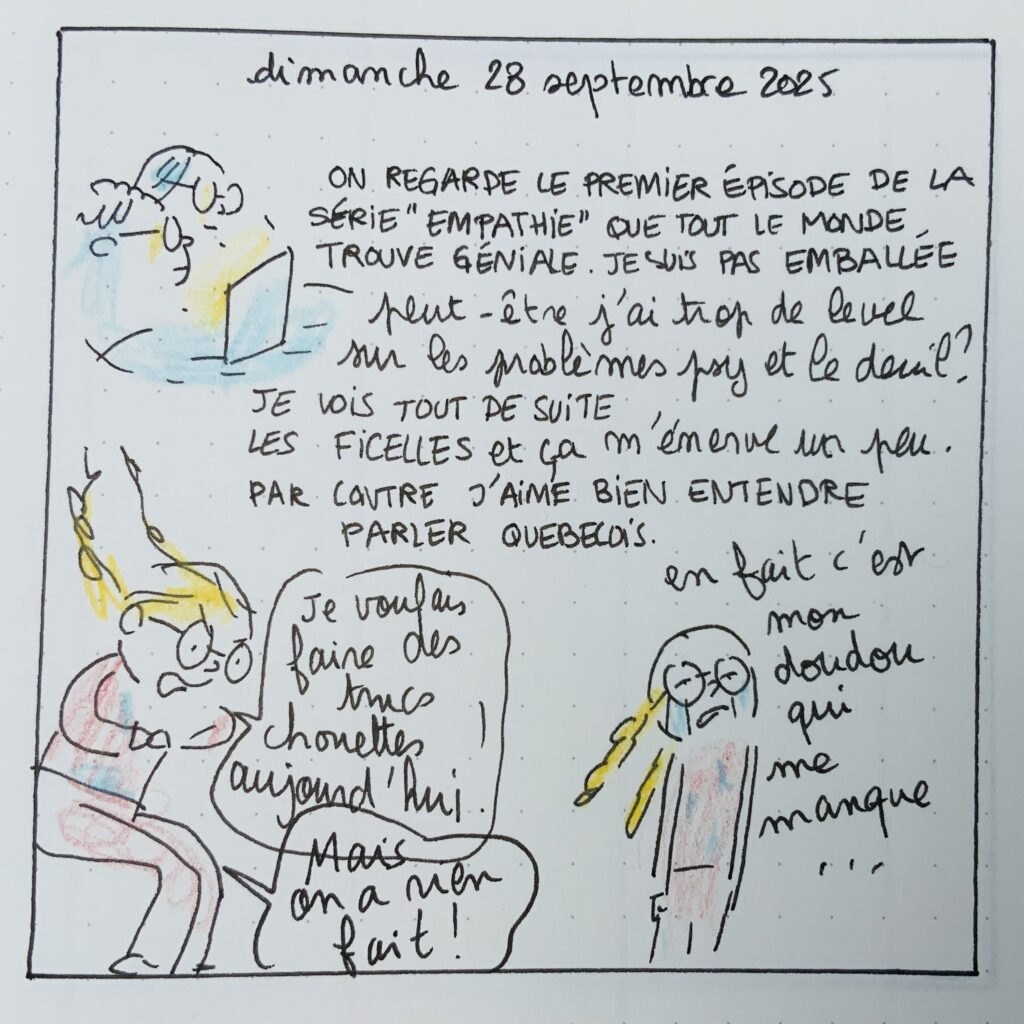 dimanche 28 septembre 2025
ON REGARDE LE PREMIER ÉPISODE DE LA
SÉRIE "EMPATHIE" QUE TOUT LE MONDE
TROUVE GÉNIALE. JE SUIS PAS EMBALLÉE
peut-être j'ai trop de level
sur les problèmes psy et le deuil?
JE VOIS TOUT DE SUITE
LES FICELLES et ça m'énerve un peu.
PAR CONTRE J'AIME BIEN ENTENDRE
PARLER QUEBECOIS.
Je voulais
faire des
trucs
chouettes
aujourd'hui.
Mais
on a rien
fait !
en fait c'est
mon
doudou
qui
me
manque
...